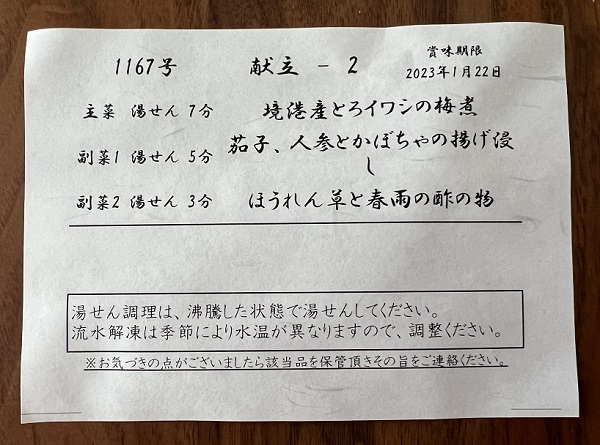 1167号 献立 - 2 賞味期限
2023年1月22日
主菜 湯せん 7分 境港産とろイワシの梅煮
副菜1 湯せん 5分 茄子、人参とかぼちゃの揚げ浸
し
副菜2 湯せん 3分 ほうれん草と春雨の酢の物
湯せん調理は、沸騰した状態で湯せんしてください。
流水解凍は季節により水温が異なりますので、調整ください。
※お気づきの点がございましたら該当品を保管頂きその旨をご連絡ください。